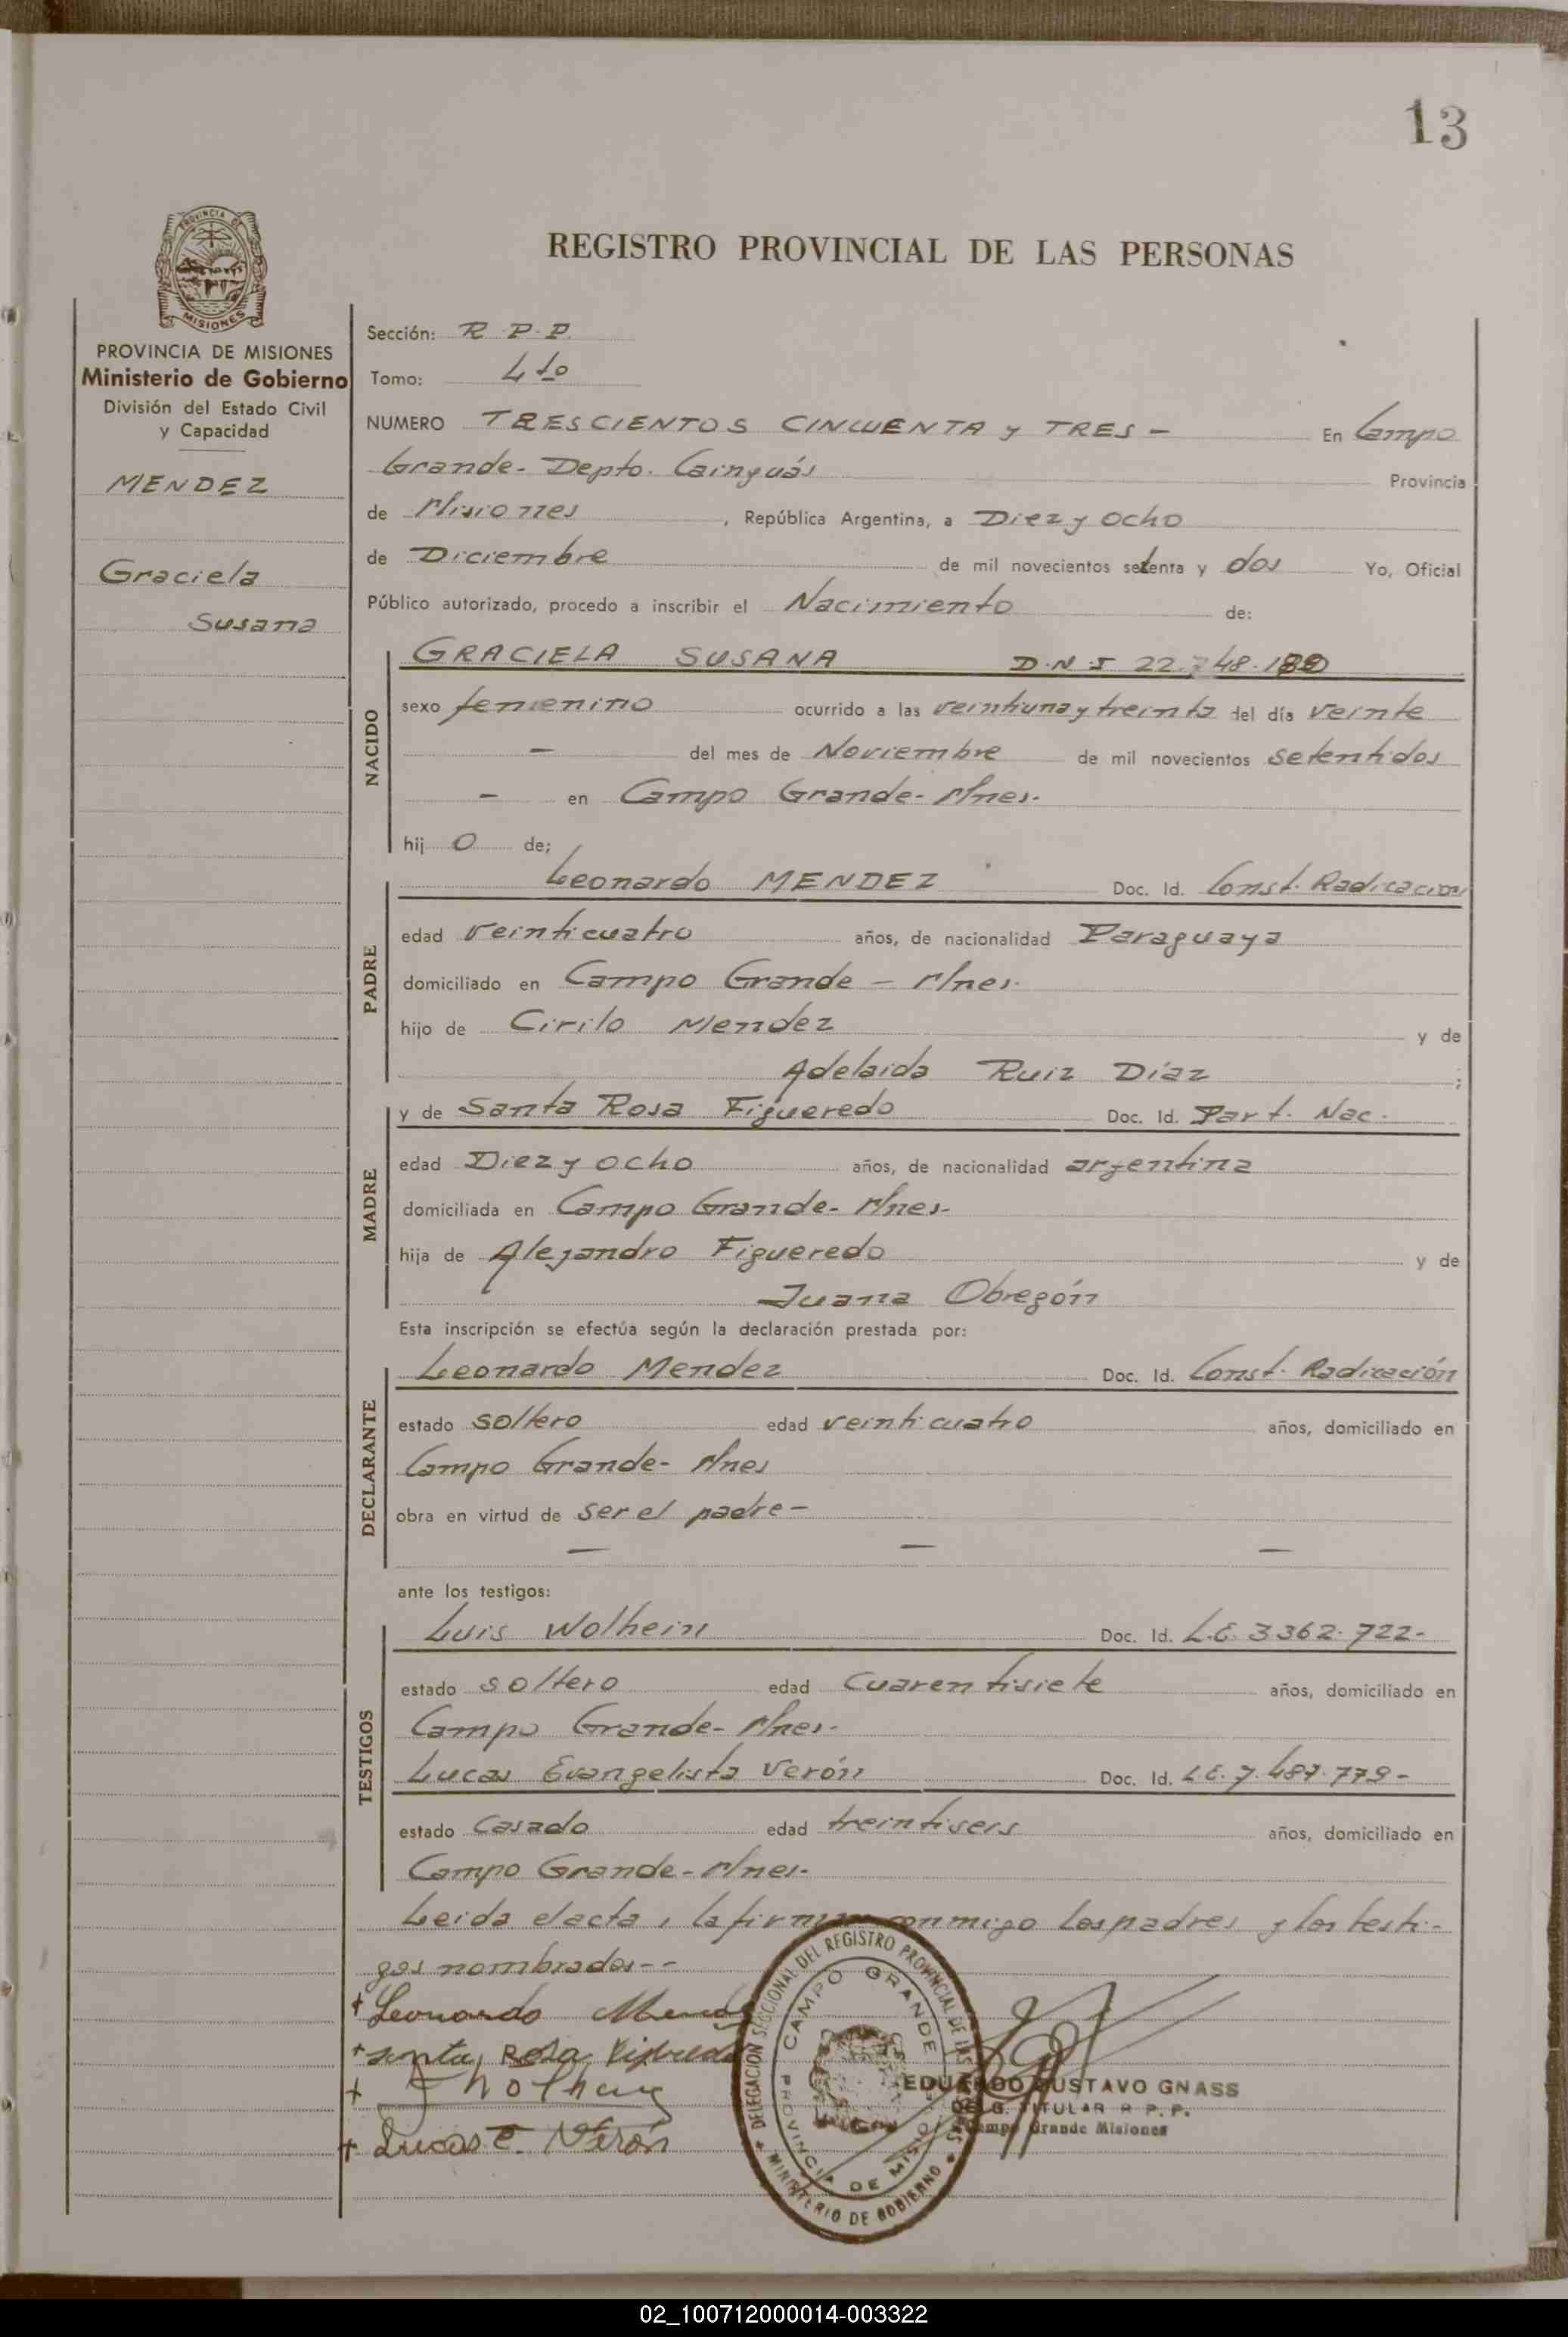 13
PROVINCIA DE
MISIONES
REGISTRO PROVINCIAL DE LAS PERSONAS
PROVINCIA DE MISIONES
Ministerio de Gobierno
División del Estado Civil
y Capacidad
MENDEZ
Graciela
Susana
Sección: R.P.P.
Tomo: 4to
NUMERO TRESCIENTOS CINCUENTA y TRES - En Campo
Grande - Depto. Cainguás Provincia
de Misiones, República Argentina, a Diez y ocho
de Diciembre de mil novecientos setenta y dos Yo, Oficial
Público autorizado, procedo a inscribir el Nacimiento de:
NACIDO
GRACIELA SUSANA D.N.I 22.748.180
sexo femenino ocurrido a las veintiuna y treinta del día veinte
- del mes de Noviembre de mil novecientos setentidos
- en Campo Grande - Mnes.
hij o de;
PADRE
Leonardo MENDEZ Doc. Id. Const. Radicacion
edad veinticuatro años, de nacionalidad Paraguaya
domiciliado en Campo Grande - Mnes.
hijo de Cirilo Mendez y de
Adelaida Ruiz Díaz ;
MADRE
y de Santa Rosa Figueredo Doc. Id. Part. Nac.
edad Diez y ocho años, de nacionalidad argentina
domiciliada en Campo Grande - Mnes-
hija de Alejandro Figueredo y de
Juana Obregón
Esta inscripción se efectúa según la declaración prestada por:
DECLARANTE
Leonardo Mendez Doc. Id. Const. Radicación
estado soltero edad veinticuatro años, domiciliado en
Campo Grande - Mnes
obra en virtud de ser el padre -
- - -
ante los testigos:
TESTIGOS
Luis Wolhein Doc. Id. L.E. 3362.722-
estado soltero edad cuarentisiete años, domiciliado en
Campo Grande - Mnes.
Lucas Evangelista Verón Doc. Id. L.E. 7.487.779-
estado Casado edad treintiseis años, domiciliado en
Campo Grande - Mnes.
Leida el acta, la firman conmigo los padres y los testi-
gos nombrados--
+ Leonardo Mendez
+ santa Rosa Figueredo
+
+ Lucas E. Verón
DELEGACION SECCIONAL DEL REGISTRO PROVINCIAL DE LAS
MINISTERIO DE GOBIERNO
CAMPO GRANDE
PROVINCIA DE MISIO
EDUARDO GUSTAVO GNASS
DELG. TITULAR R.P.P.
Campo Grande Misiones
02_100712000014-003322